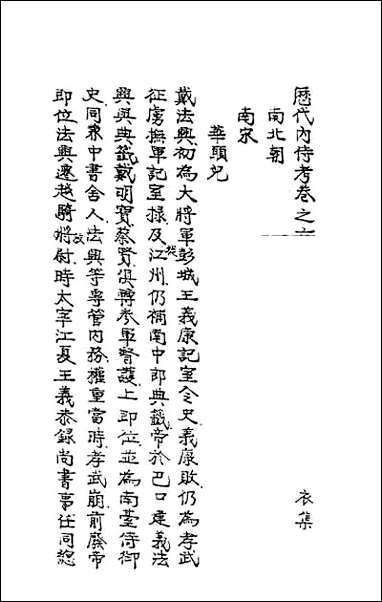 歷代內侍考卷之六
衣集
南北朝
南宋
華頭兒
戴法興初為大將軍彭城王義康記室令史義康敗仍為孝武
征虜撫軍記室掾及從江州仍補南中郎典籤帝於巴口建義法
興與典籤戴明寶蔡賢俱轉參軍督護上即位並為南臺侍御
史同兼中書舍人法興等專管內務權重當時孝武崩前廢帝
即位法興遷越騎將校尉時太宰江夏王義恭錄尚書事任同總